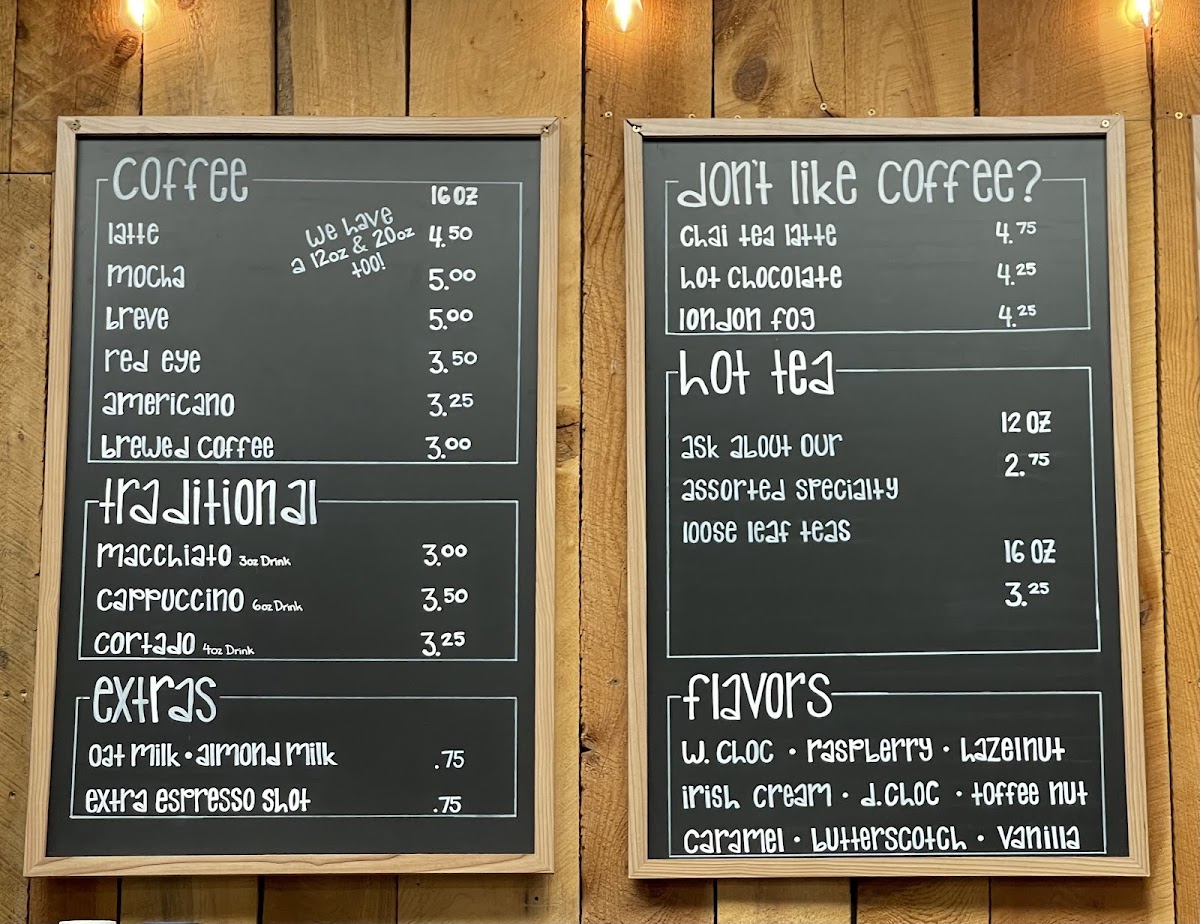 coffee
16 oz
we have
a 12oz & 20oz
too!
latte 4.50
mocha 5.00
breve 5.00
red eye 3.50
americano 3.25
brewed coffee 3.00
traditional
macchiato 3oz Drink 3.00
cappuccino 6oz Drink 3.50
cortado 4oz Drink 3.25
extras
oat milk • almond milk .75
extra espresso shot .75
don't like coffee?
chai tea latte 4.75
hot chocolate 4.25
london fog 4.25
hot tea
12 oz
ask about our 2.75
assorted specialty
loose leaf teas
16 oz
3.25
flavors
w. choc • raspberry • hazelnut
irish cream • d.choc • toffee nut
caramel • butterscotch • vanilla